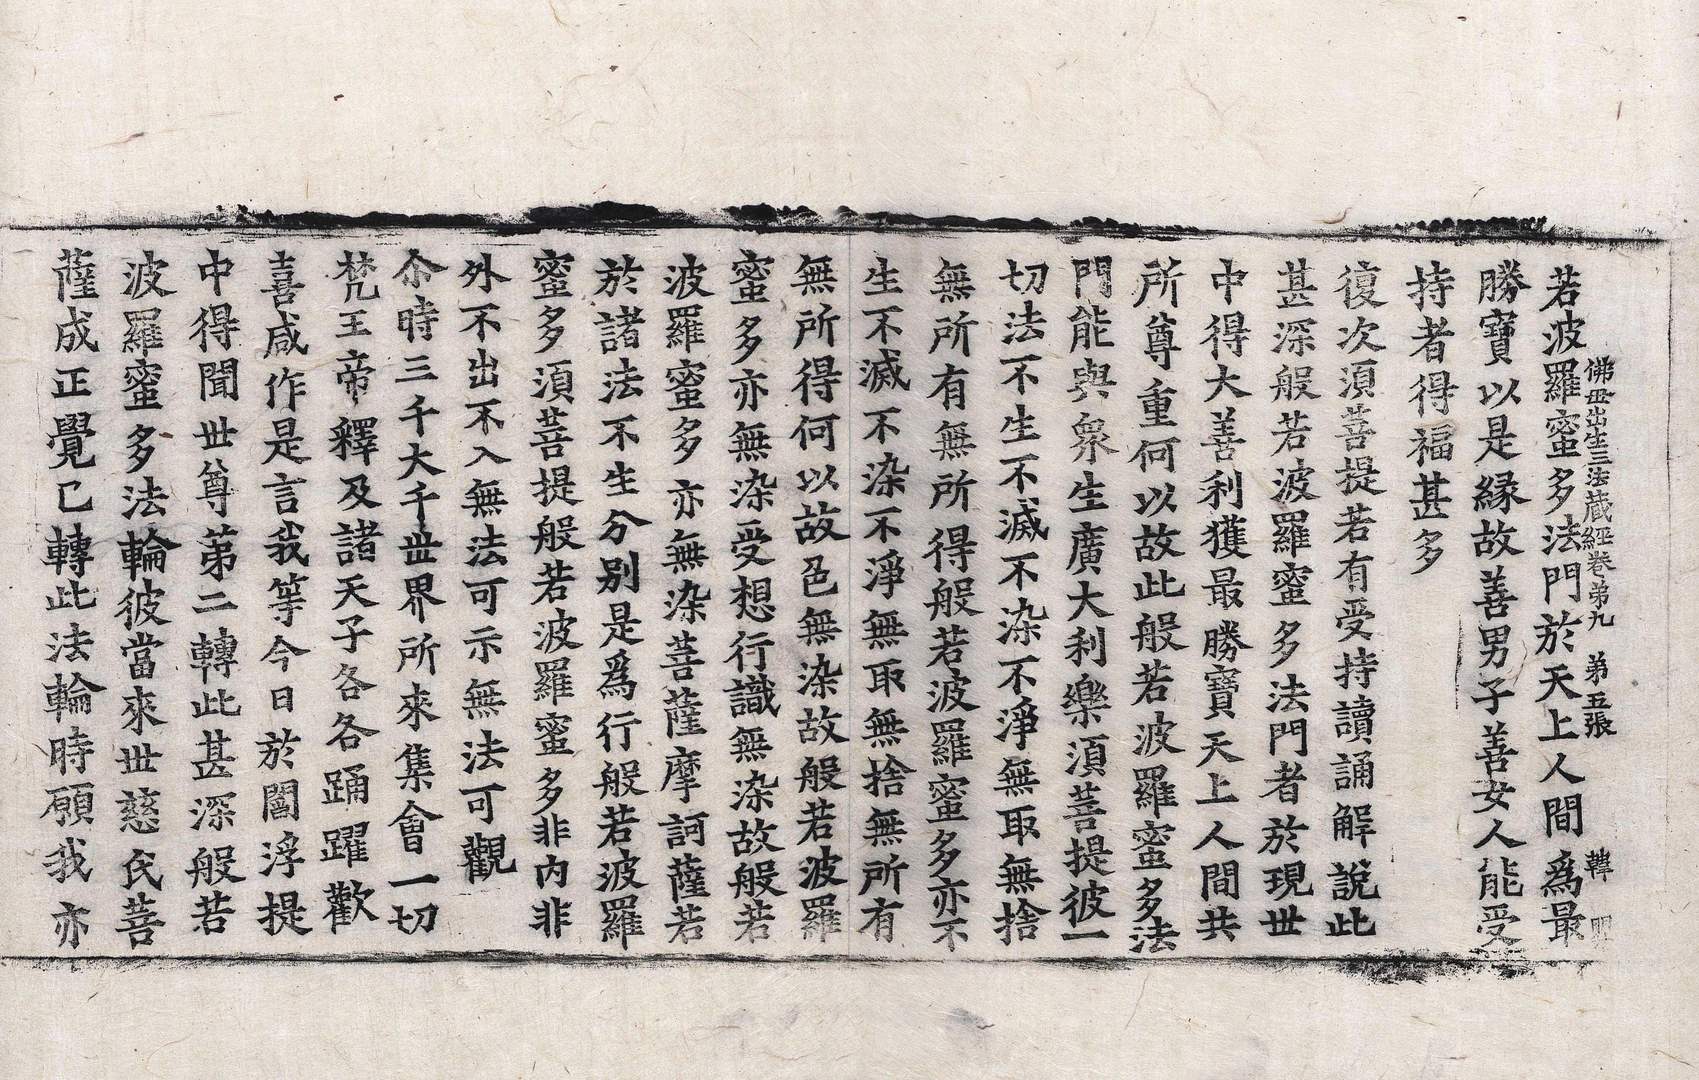 佛母出生三法藏經卷第九　第五張　韓
若波羅蜜多法門於天上人間爲最
勝寶以是緣故善男子善女人能受
持者得福甚多
復次須菩提若有受持讀誦解說此
甚深般若波羅蜜多法門者於現世
中得大善利獲最勝寶天上人間共
所尊重何以故此般若波羅蜜多法
門能與衆生廣大利樂須菩提彼一
切法不生不滅不染不淨無取無捨
無所有無所得般若波羅蜜多亦不
生不滅不染不淨無取無捨無所有
無所得何以故色無染故般若波羅
蜜多亦無染受想行識無染故般若
波羅蜜多亦無染菩薩摩訶薩若
於諸法不生分別是爲行般若波羅
蜜多須菩提般若波羅蜜多非內非
外不出不入無法可示無法可觀
尒時三千大千世界所來集會一切
梵王帝釋及諸天子各各踊躍歡
喜咸作是言我等今日於閻浮提
中得聞世尊第二轉此甚深般若
波羅蜜多法輪彼當來世慈氏菩
薩成正覺已轉此法輪時願我亦